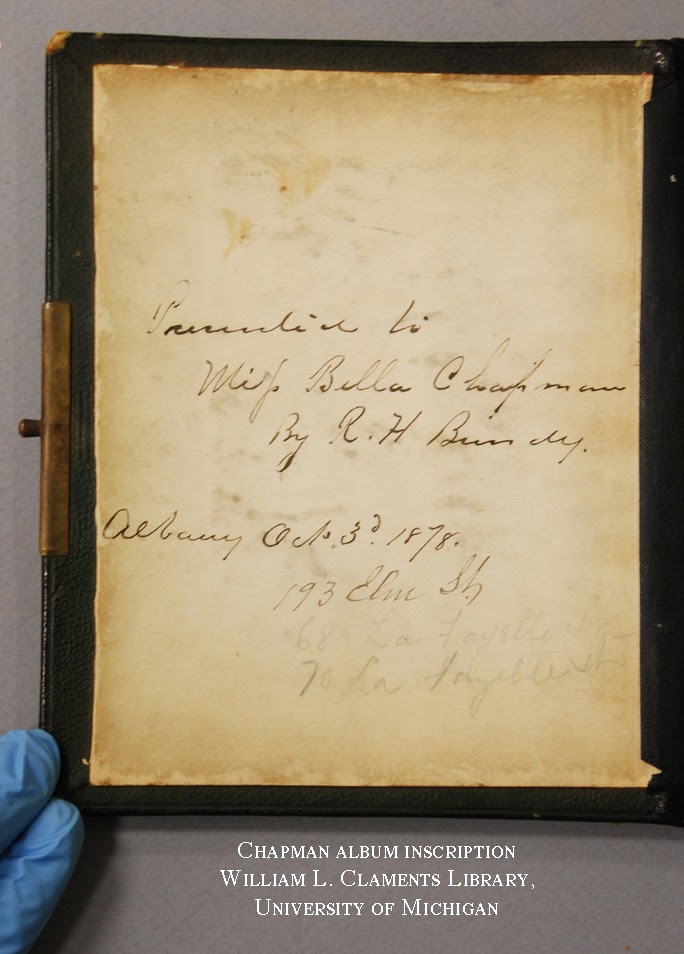 Presented to
Miss Bella Chapman
By R. H Bundy.
Albany Oct. 3d. 1878.
193 Elm St
68 La Fayette St
70 La Fayette St
CHAPMAN ALBUM INSCRIPTION
WILLIAM L. CLAMENTS LIBRARY,
UNIVERSITY OF MICHIGAN